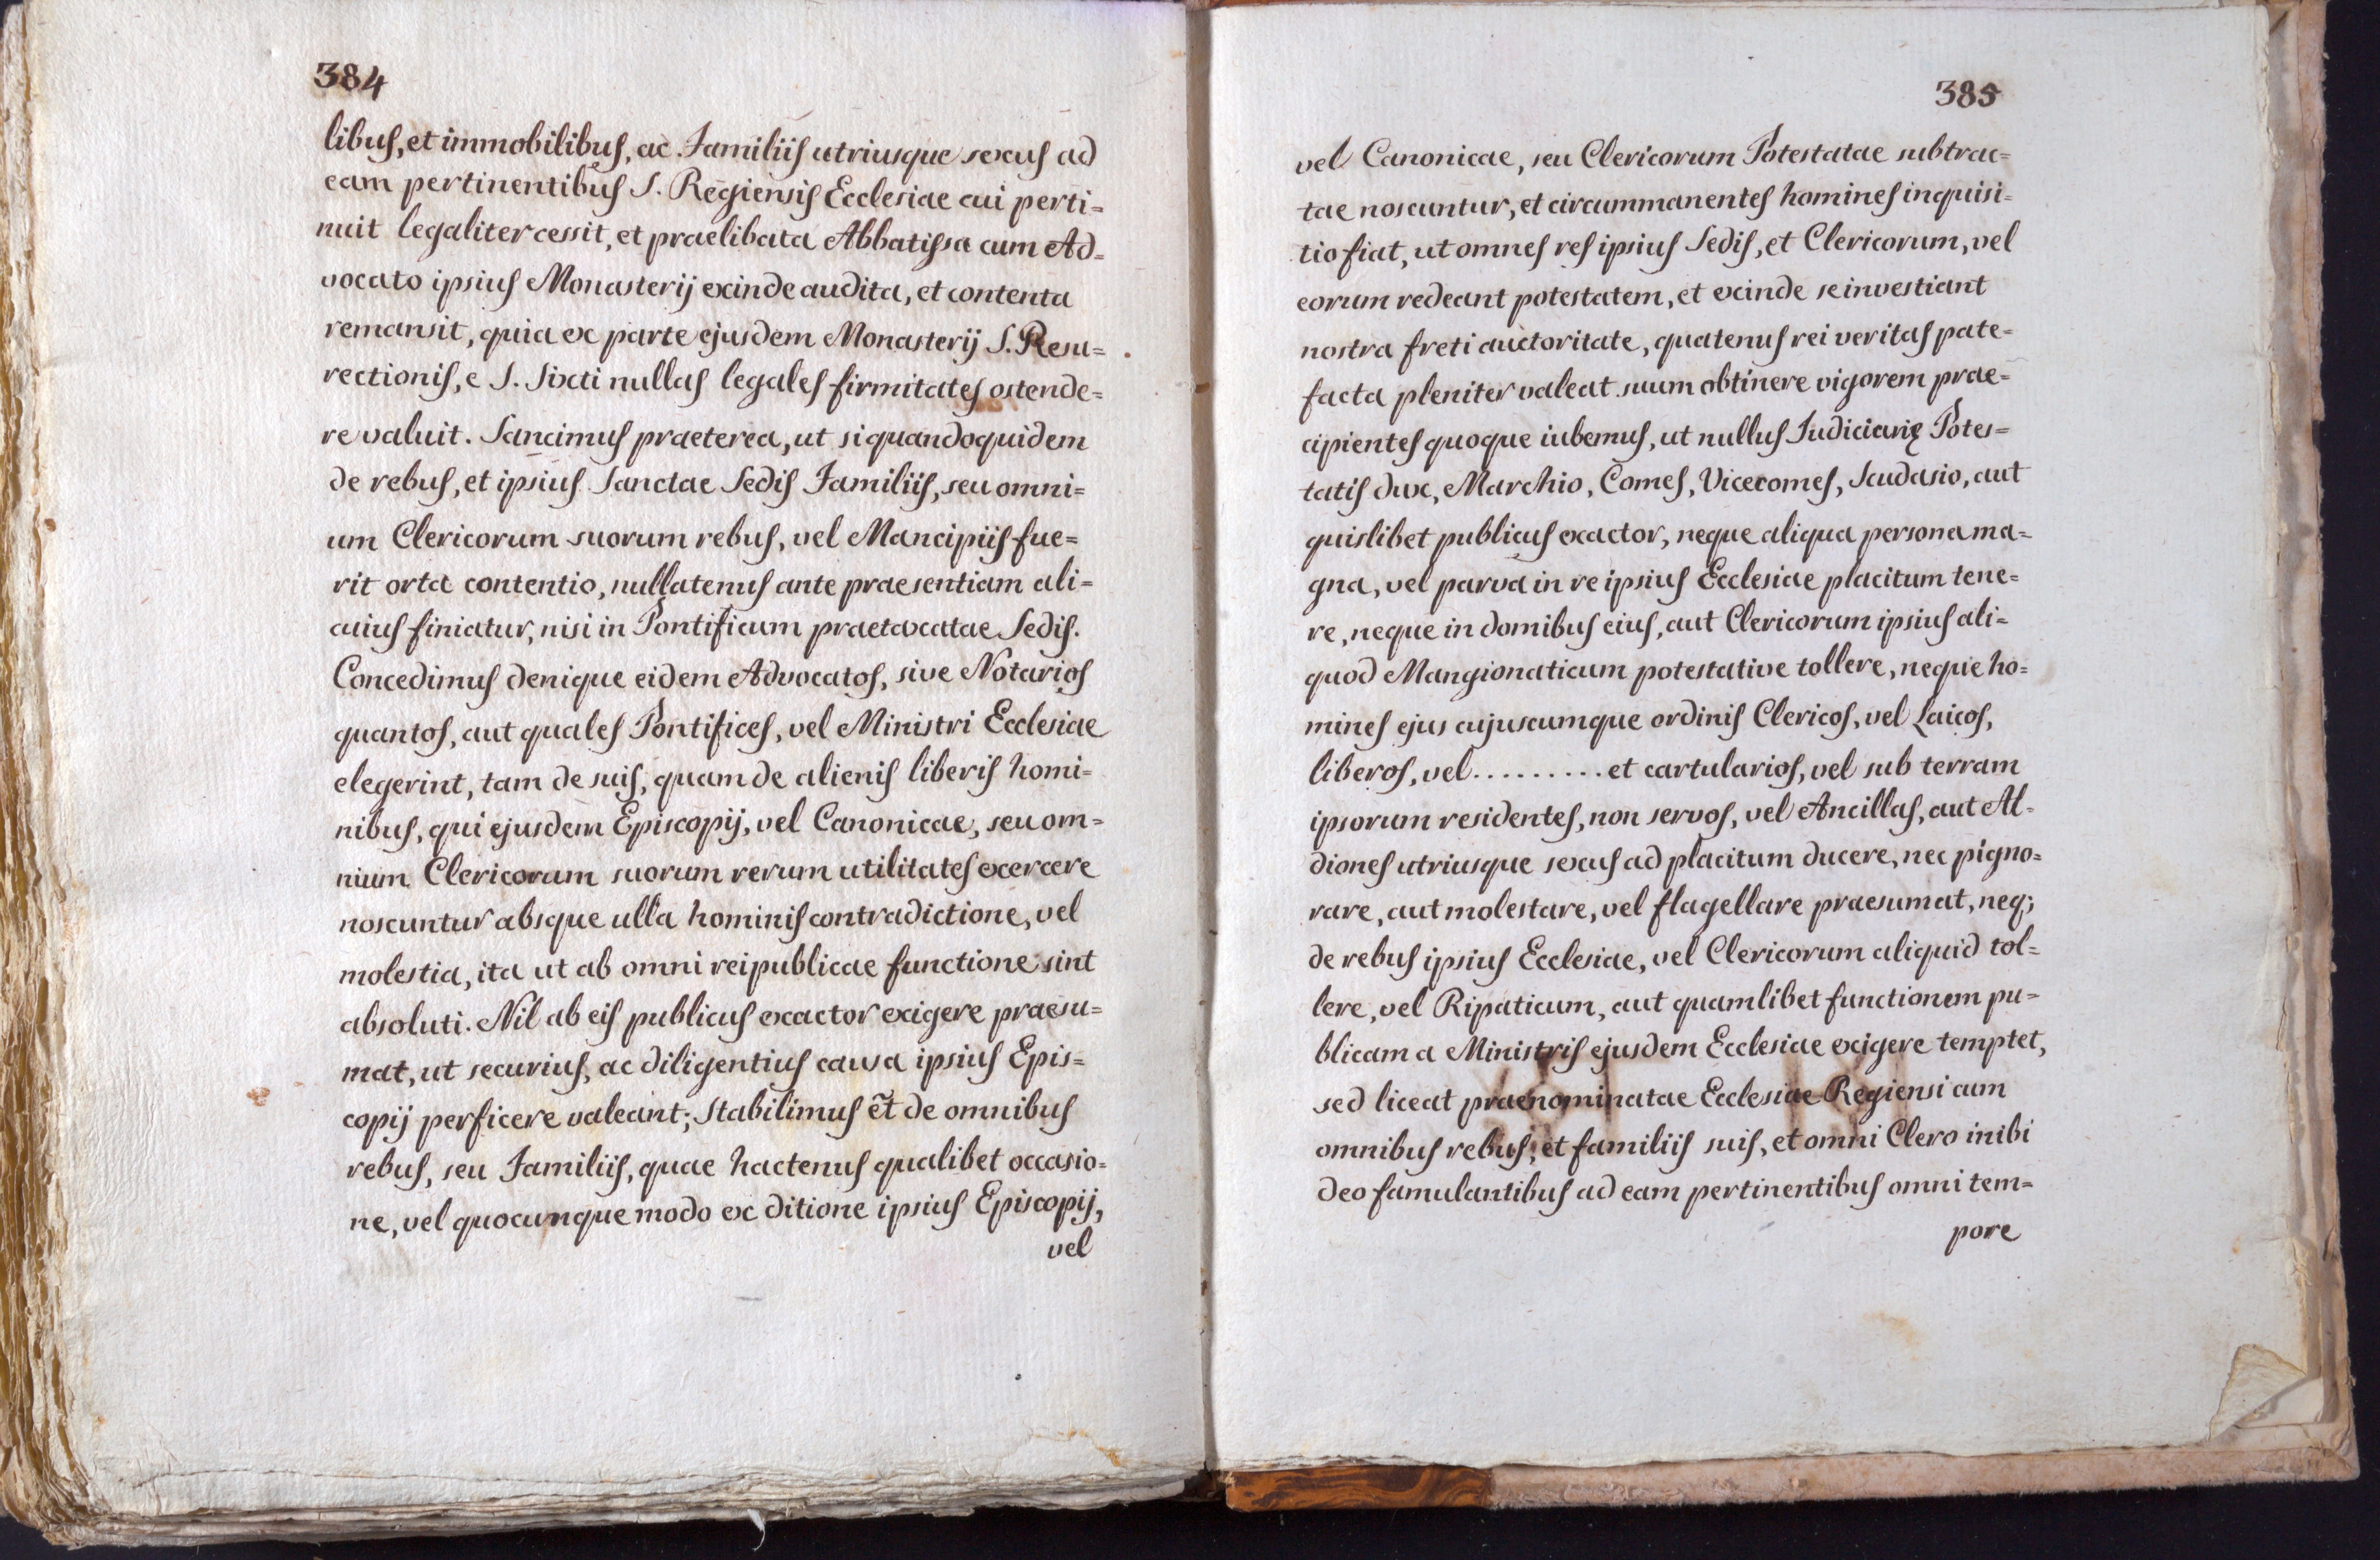 384
libus, et immobilibus, ac Familiis utriusque sexus ad
eam pertinentibus S. Regiensis Ecclesiae cui perti=
nuit legaliter cessit, et praelibata Abbatissa cum Ad=
vocato ipsius Monasterij exinde audita, et contenta
remansit, quia ex parte ejusdem Monasterij S. Resu=
rectionis, e S. Sixti nullas legales firmitates ostende=
re valuit. Sancimus praeterea, ut si quandoquidem
de rebus, et ipsius Sanctae Sedis Familiis, seu omni=
um Clericorum suorum rebus, vel Mancipiis fue=
rit orta contentio, nullatenus ante praesentiam ali=
cuius finiatur, nisi in Pontificum praetaxatae Sedis.
Concedimus denique eidem Advocatos, sive Notarios
quantos, aut quales Pontifices, vel Ministri Ecclesiae
elegerint, tam de suis, quam de alienis liberis homi=
nibus, qui ejusdem Episcopij, vel Canonicae, seu om=
nium Clericorum suorum rerum utilitates exercere
noscuntur absque ulla hominis contradictione, vel
molestia, ita ut ab omni reipublicae functione sint
absoluti. Nil ab eis publicus exactor exigere praesu=
mat, ut securius, ac diligentius causa ipsius Epis=
copij perficere valeant; Stabilimus et̃ de omnibus
rebus, seu Familiis, quae hactenus qualibet occasio=
ne, vel quocunque modo ex ditione ipsius Episcopij,
vel
385
vel Canonicae, seu Clericorum Potestatae subtrac=
tae noscuntur, et circummanentes homines inquisi=
tio fiat, ut omnes res ipsius Sedis, et Clericorum, vel
eorum redeant potestatem, et exinde se investiant
nostra freti auctoritate, quatenus rei veritas pate=
facta pleniter valeat suum obtinere vigorem prae=
cipientes quoque iubemus, ut nullus Iudiciarię Potes=
tatis dux, Marchio, Comes, Vicecomes, Scudasio, aut
quislibet publicus exactor, neque aliqua persona ma=
gna, vel parva in re ipsius Ecclesiae placitum tene=
re, neque in domibus eius, aut Clericorum ipsius ali=
quod Mangionaticum potestative tollere, neque ho=
mines ejus cujuscumque ordinis Clericos, vel Laicos,
liberos, vel ......... et cartularios, vel sub terram
ipsorum residentes, non servos, vel Ancillas, aut Al=
diones utriusque sexus ad placitum ducere, nec pigno=
rare, aut molestare, vel flagellare praesumat, neq;
de rebus ipsius Ecclesiae, vel Clericorum aliquid tol=
lere, vel Ripaticum, aut quamlibet functionem pu=
blicam a Ministris ejusdem Ecclesiae exigere temptet,
sed liceat praenominatae Ecclesiae Regiensi cum
omnibus rebus, et familiis suis, et omni Clero inibi
deo famulantibus ad eam pertinentibus omni tem=
pore